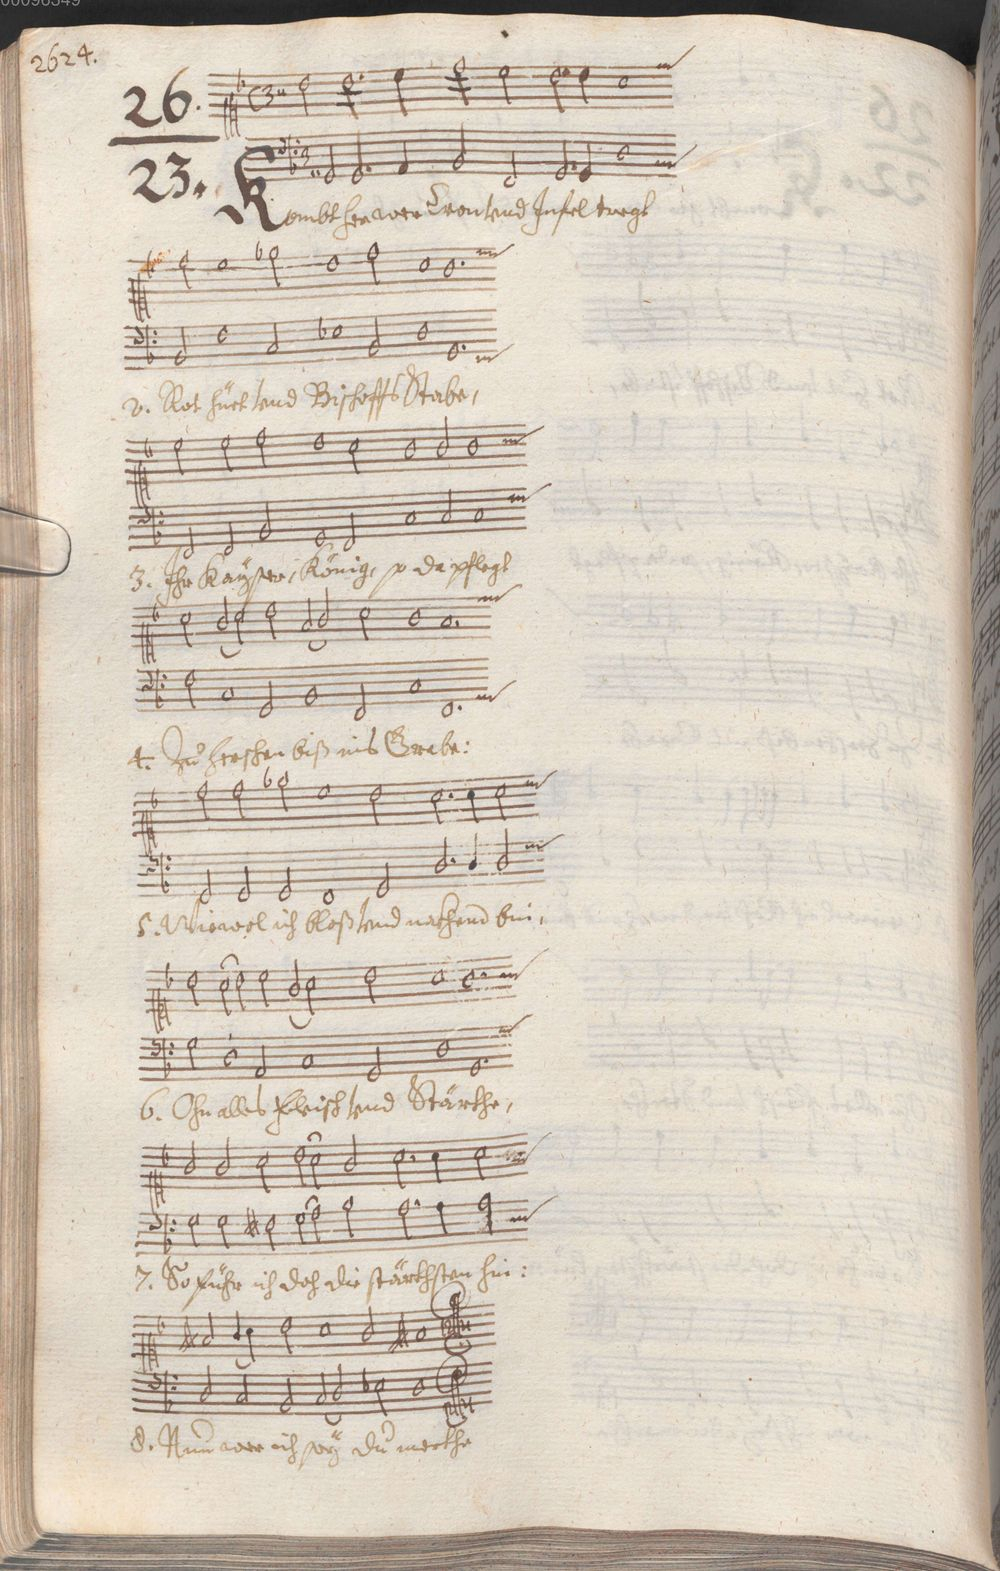 00096349
2624.
26.
23.
Kombt her wer Cron und Infel tregt
2. Rot huet und Bischoffs Stabe,
3. Ihr Kaÿser, König, so da pflegt
4. Zu herschen biß ins Grabe:
5. Wiewol ich bloß und nackend bin,
6. Ohn alles fleisch und Stärckhe,
7. So führ ich doch die stärckhsten hin:
8. Nun wer ich seÿ du merckhe